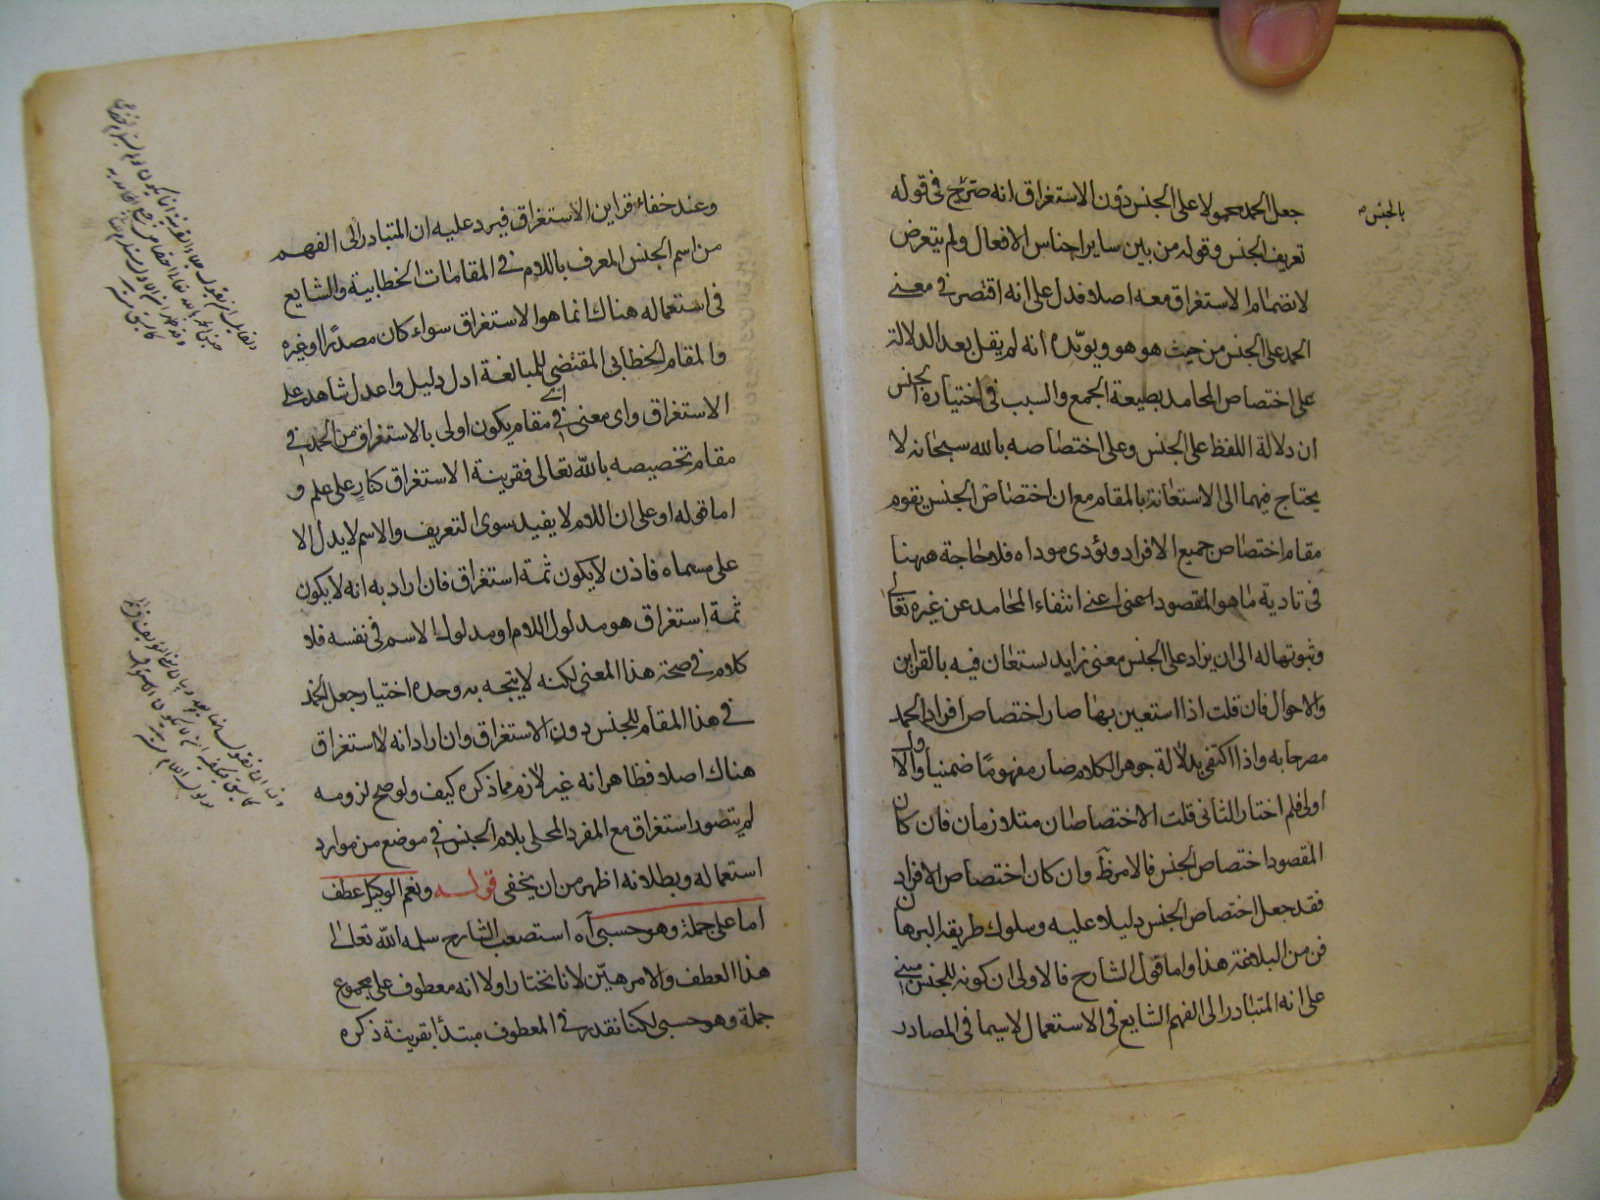 جعل الحمد محمولا على الجنس دون الاستغراق انه صرّح فى قوله
بالجنس
تعريف الجنس وقوله من بين ساير اجناس الافعال ولم يتعرض
لانضمام الاستغراق معه اصلا فدل على انه اقتصر فى معنى
الحمد على الجنس من حيث هو هو ويويّده انه لم يقل بعد الدلالة
على اختصاص المحامد بصيعة الجمع والسبب فى اختياره الجنس
ان دلالة اللفظ على الجنس وعلى اختصاصه بالله سبحانه لا
يحتاج فيهما الى الاستعانة بالمقام مع ان اختصاص الجنس يقوم
مقام اختصاص جميع الافراد ويؤدى موداه فلا حاجة ههنا
فى تادية ما هو المقصود اعنى انتفاء المحامد عن غيره تعالى
وثبوتها له الى ان يزاد على الجنس معنى زايد يستعان فيه بالقراين
والاحوال فان قلت اذا استعين بها صار اختصاص افراد الحمد
مصرحا به واذا اكتفى بدلالة جوهر الكلام صار مفهوما ضمنيا والاول
اولى فلم اختار الثانى قلت الاختصاصان متلازمان فان كان
المقصود اختصاص الجنس فالامر ظ وان كان اختصاص الافراد
فقد جعل اختصاص الجنس دليلا عليه وسلوك طريقة البرهان
فن من البلاغة هذا واما قول الشارح فالاولى ان كونه للجنس مبنى
على انه المتبادر الى الفهم الشايع فى الاستعمال لاسيما فى المصادر
وعند خفاء قراين الاستغراق فيرد عليه ان المتبادر الى الفهم
من اسم الجنس المعرف باللام فى المقامات الخطابية والشايع
فى استعماله هناك انما هو الاستغراق سواء كان مصدرًا او غيره
والمقام الخطابى المقتضى للمبالغة ادل دليل واعدل شاهد على
الاستغراق واى معنى فى اى مقام يكون اولى بالاستغراق من الحمد فى
مقام تخصيصه بالله تعالى فقرينة الاستغراق كنارٍ على علم و
اما قوله او على ان اللام لا يفيد سوى التعريف والاسم لا يدل الا
على مسماه فاذن لا يكون ثمة استغراق فان اراد به انه لا يكون
ثمة استغراق هو مدلول اللام او مدلول الاسم فى نفسه فلا
كلام فى صحة هذا المعنى لكنه لا يتجه به وحده اختيار جعل الحمد
فى هذا المقام للجنس دون الاستغراق وان اراد انه لا استغراق
هناك اصلا فظاهر انه غير لازم مما ذكره كيف ولو صح لزومه
لم يتصور استغراق مع المفرد المحلى بلام الجنس فى موضع من موارد
استعماله وبطلانه اظهر من ان يخفى قوله ونعم الوكيل عطف
اما على جملة وهو حسبى آه استصعب الشارح سلمه الله تعالى
هذا العطف والامر هيّن لانا نختار اولا انه معطوف على مجموع
جملة وهو حسبى لكنا نقدر فى المعطوف مبتدأ بقرينة ذكره